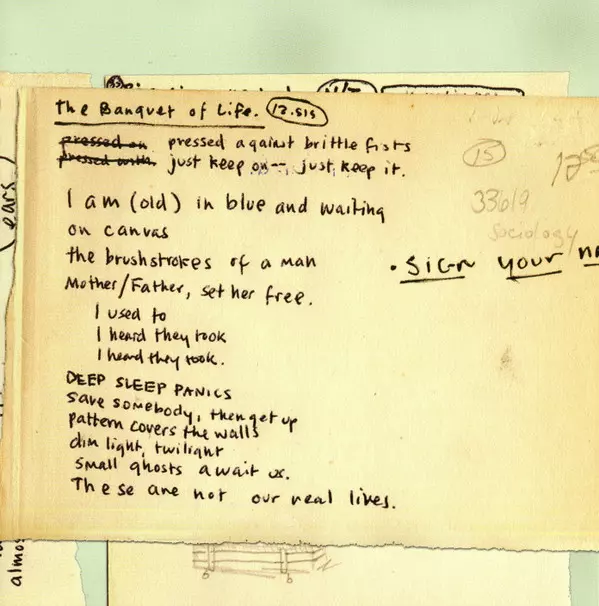 The Banquet of Life. 12.sis
pressed on pressed against brittle fists
pressed with. just keep on--, just keep it.
I am (old) in blue and waiting
on canvas
the brushstrokes of a man
Mother/Father, set her free.
I used to
I heard they took
I heard they took.
DEEP SLEEP PANICS
save somebody, then get up
pattern covers the walls
dim light, twilight
small ghosts await us.
These are not our real lives.
15
33619
Sociology
• Sign your
ears)
almos